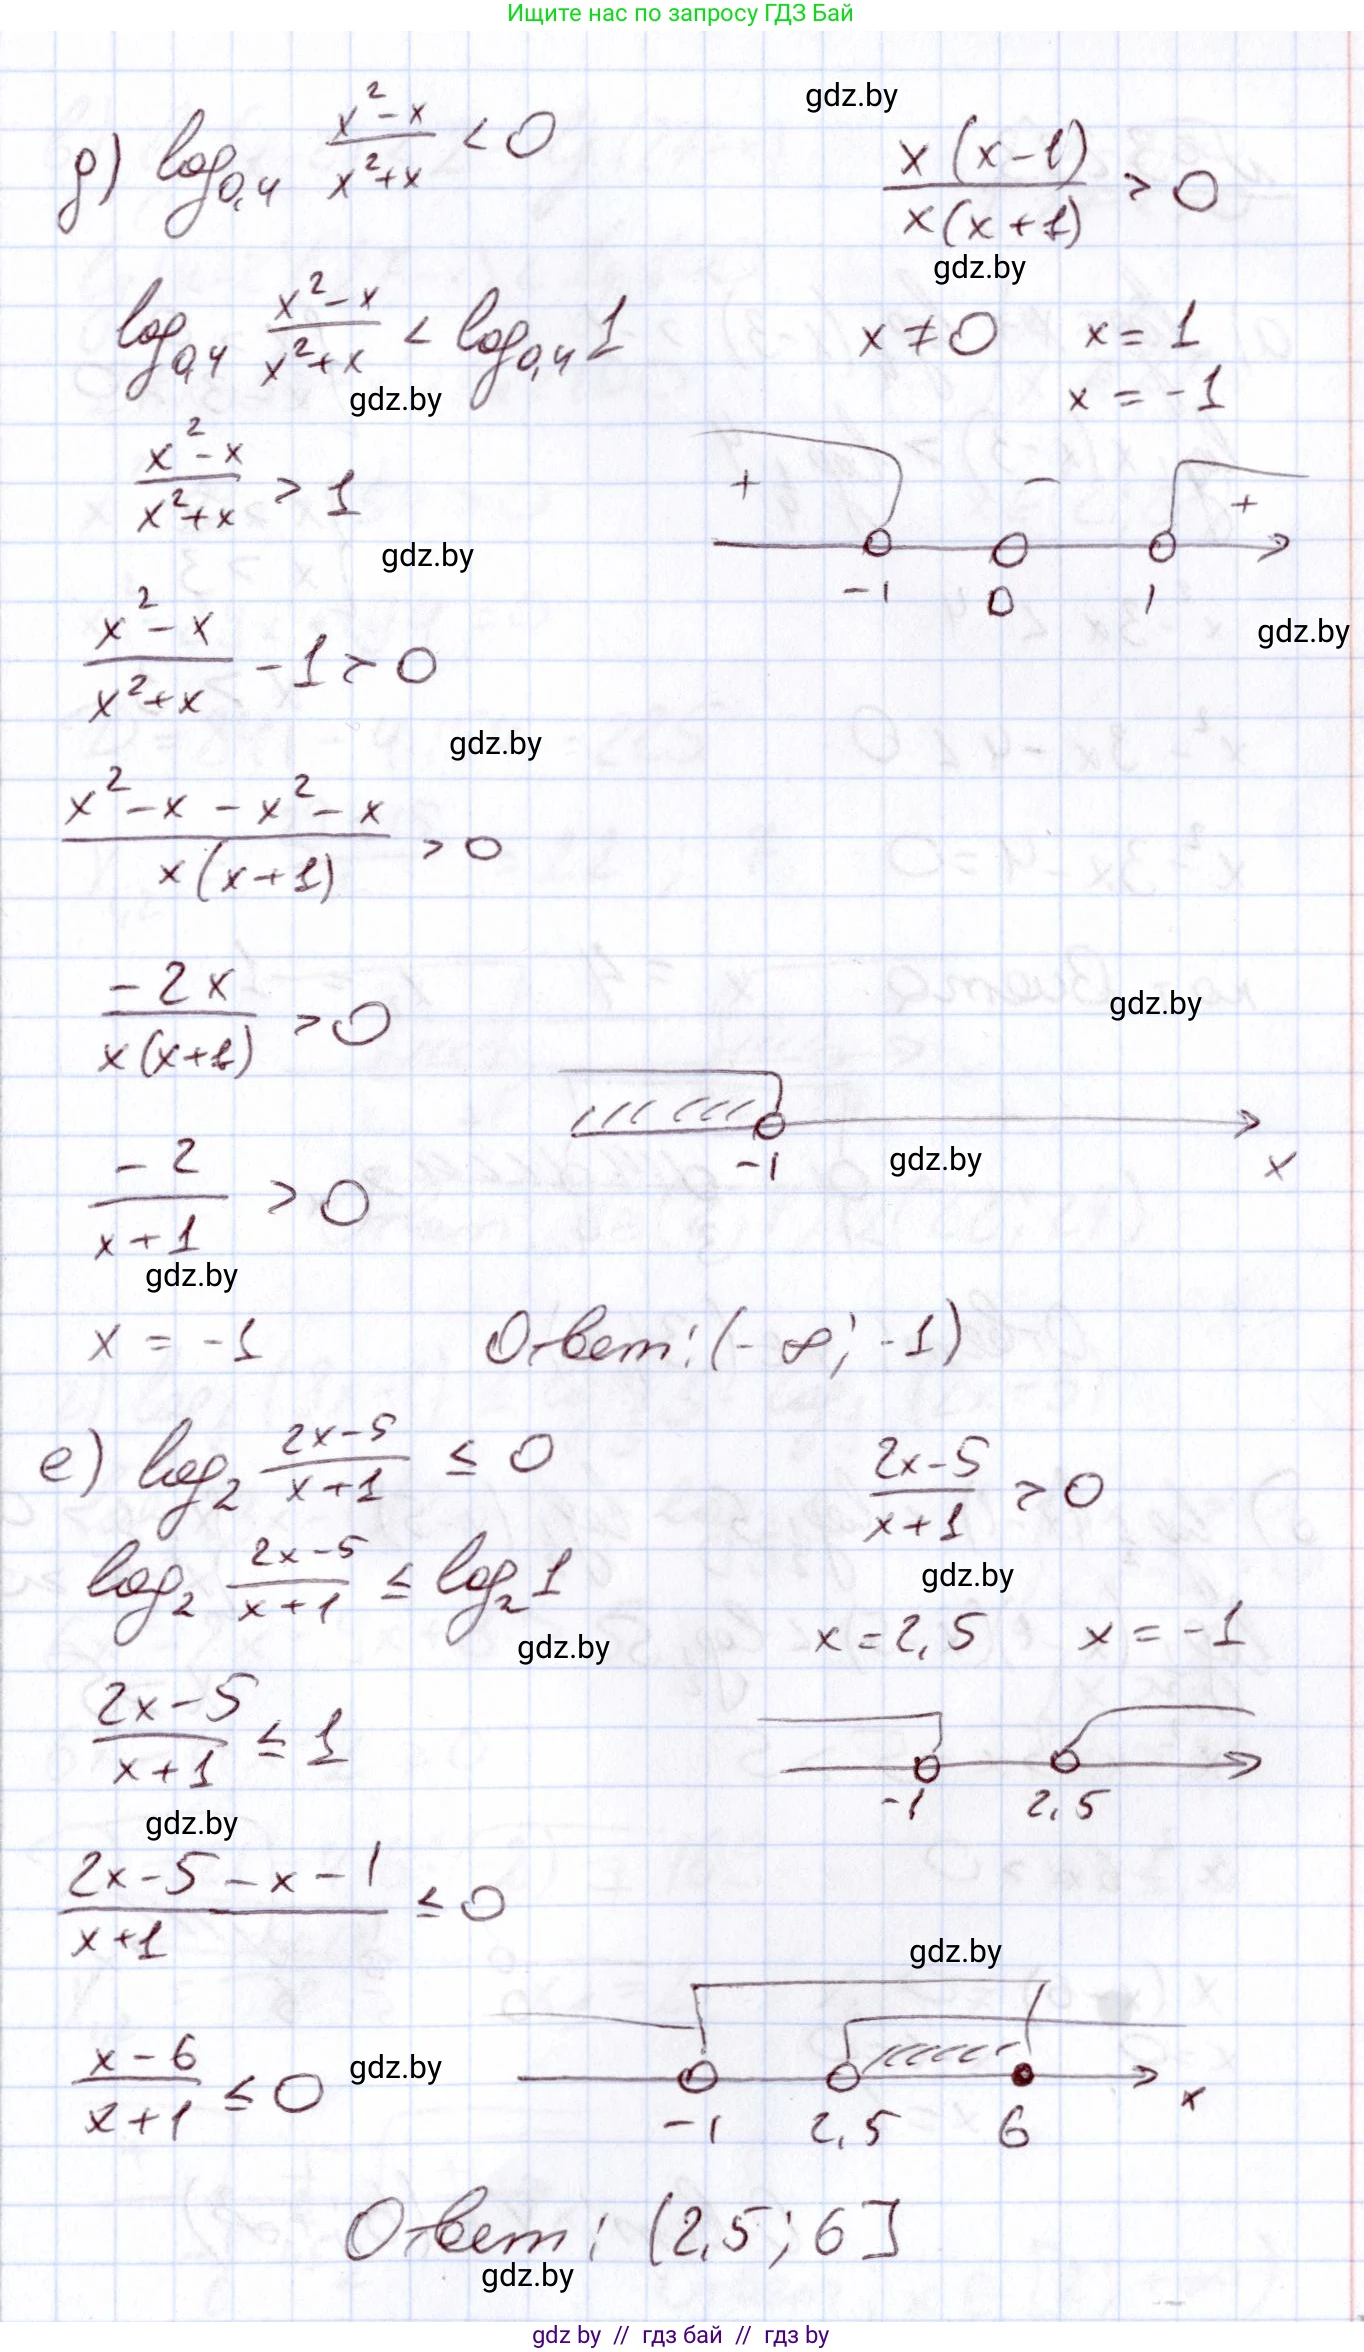 Ищите нас по запросу ГДЗ Бай
д) log₀,₄ (x²-x)/(x²+x) < 0
gdz.by
x(x-1)/x(x+1) > 0
gdz.by
log₀,₄ (x²-x)/(x²+x) < log₀,₄ 1
gdz.by
x ≠ 0 x = 1
x = -1
(x²-x)/(x²+x) > 1
gdz.by
+ - +
-1 0 1
gdz.by
(x²-x)/(x²+x) - 1 > 0
gdz.by
(x²-x-x²-x)/x(x+1) > 0
-2x/x(x+1) > 0
gdz.by
-1 x
gdz.by
-2/(x+1) > 0
gdz.by
x = -1
Ответ: (-∞; -1)
е) log₂ (2x-5)/(x+1) ≤ 0
(2x-5)/(x+1) > 0
gdz.by
log₂ (2x-5)/(x+1) ≤ log₂ 1
gdz.by
x = 2,5 x = -1
(2x-5)/(x+1) ≤ 1
gdz.by
-1 2,5
(2x-5-x-1)/(x+1) ≤ 0
gdz.by
(x-6)/(x+1) ≤ 0
gdz.by
-1 2,5 6 x
Ответ: (2,5; 6]
gdz.by
gdz by // гдз бай // gdz by